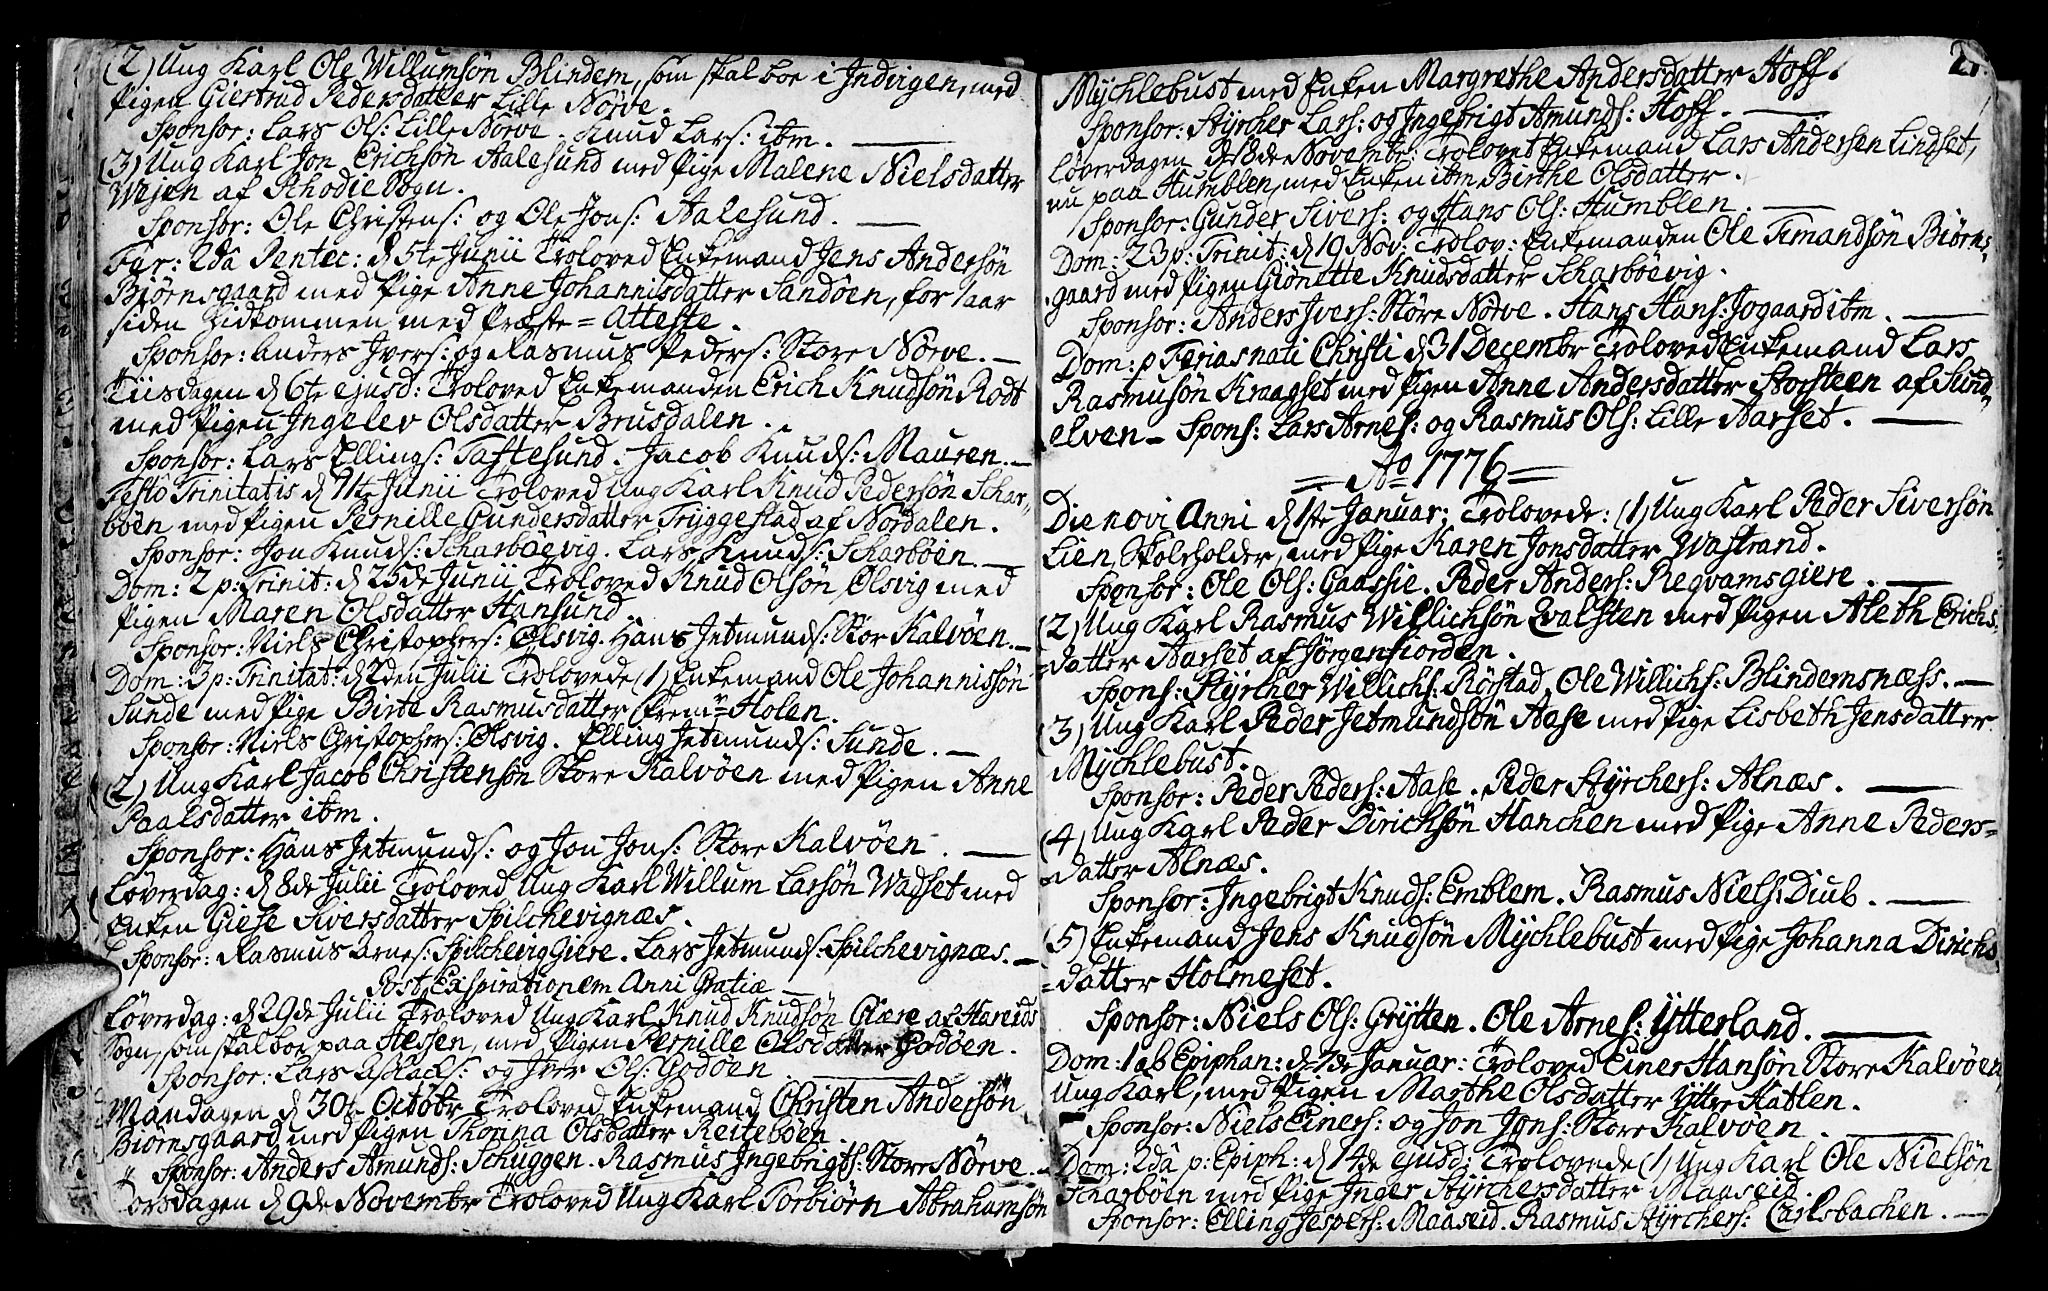 (2) Ung Karl Ole Willumsön Blindem, som skal boe i Indvigen, med
Pigen Giertrud Pedersdatter Lille Nörve.
Sponsor: Lars Ols: Lille Nörve. Knud Lars: ibm.
(3) Ung Karl Jon Erichsön Aalesund med Pige Malene Nielsdatter
af Sogn.
Sponsor: Ole Christens: og Ole Jons: Aalesund.
Fer: 2dâ Pentec: d 5te Junii Troloved Enkemand Jens Andersön
Biørnsgaard med Pige Anne Johannisdatter Sandöen, for 1 aar
siden hidkommen med Præste=Atteste.
Sponsor: Anders Ivers: og Rasmus Peders: Store Nörve.
Tiisdagen d 6te ejusd: Troloved Enkemanden Erich Knudsön Rødt
med Pigen Ingelev Olsdatter Brusdalen.
Sponsor: Lars Ellings: Taftesund. Jacob Knuds: Mauren.
Festô Trinitatis d 11te Junii Troloved Ung Karl Knud Pedersön Schar-
böen med Pigen Pernille Gundersdatter Tryggestad af Nordalen.
Sponsor: Jon Knuds: Scharböevig. Lars Knuds: Scharböen.
Dom: 2 p: Trinit: d 25de Junii Troloved Knud Olsön Ølsvig med
Pigen Maren Olsdatter Hansund.
Sponsor: Niels Christophers: Ølsvig. Hans Jetmunds: Stor Kalvöen.
Dom: 3 p: Trinitat: d 2den Julii Trolovede (1) Enkemand Ole Johannissön
Sunde med Pige Birte Rasmusdatter Holen.
Sponsor: Niels Christophers: Ølsvig. Elling Jetmunds: Sunde.
(2) Ung Karl Jacob Christensön Store Kalvöen med Pigen Anne
Paalsdatter ibm.
Sponsor: Hans Jetmunds: og Jon Jons: Store Kalvöen.
Löverdag: d 8de Julii Troloved Ung Karl Willum Larsön Wadset med
Enken Giese Siversdatter Spilchevignæs.
Sponsor: Rasmus Arnes: Spilchevig Giere. Lars Jetmunds: Spilchevignæs.
Post Exspirationem Anni Gratiæ
Löverdag: d 29de Julii Troloved Ung Karl Knud Knudsön Giære af Hareids
Sogn, som skal boe paa Hessen, med Pigen Pernille Olsdatter Godöen.
Sponsor: Lars Aslacks: og Iver Ols: Godöen.
Mandagen d 30te Octobr Troloved Enkemand Christen Andersön
Biørnsgaard med Pigen Thorina Olsdatter Reiteböen.
Sponsor: Anders Amunds: Schuggen. Rasmus Ingebrigts: Store Nörve.
Torsdagen d 9de Novembr Troloved Ung Karl Torbiörn Abrahamsön
21.
Mychlebust med Enken Margrethe Andersdatter Hoff.
Sponsor: Styrcher Lars: og Ingebrigt Amunds: Hoff.
Løverdagen d 18de Novembr: Trolovet Enkemand Lars Andersen Lindset,
nu paa Humblen, med Enken ibm Birthe Olsdatter.
Sponsor: Gunder Sivers: og Hans Ols: Humblen.
Dom: 23 p: Trinit: d 19 Nov: Trolov: Enkemanden Ole Timandsön Biørns-
gaard med Pigen Giönette Knudsdatter Scharböevig.
Sponsor: Anders Ivers: Störe Nörve. Hans Hans: Jogaard ibm.
Dom: p Ferias nati Christi d 31 Decembr Troloved Enkemand Lars
Rasmusön Kraagset med Pigen Anne Andersdatter Storsteen af Sund-
elven - Spons: Lars Arnes: og Rasmus Ols: Lille Aarset.
= Ao 1776 =
Die novi Anni d 1ste Januar; Trolovede: (1) Ung Karl Peder Siversön
Lien, Skoleholder, med Pige Karen Jonsdatter Wastrand.
Sponsor: Ole Ols: Gaassie. Peder Anders: Regvamsgiere.
(2) Ung Karl Rasmus Willichsön Qvalsten med Pigen Aleth Erichs-
datter Aarset af Jørgenfiorden.
Spons: Styrcher Willichs: Rörstad. Ole Willichs: Blindemsnæss.
(3) Ung Karl Peder Jetmundsön Aase med Pige Lisbeth Jensdatter
Mychlebust.
Sponsor: Peder Peders: Aase. Peder Styrchers: Alnæs.
(4) Ung Karl Peder Dirichsön Hanchen med Pige Anne Peders=
datter Alnæs.
Sponsor: Ingebrigt Knuds: Emblem. Rasmus Niels: Diub.
(5) Enkemand Jens Knudsön Mychlebust med Pige Johanna Dirichs
=datter Holmeset.
Sponsor: Niels Ols: Grytten. Ole Arnes: Ytterland.
Dom: 1 ab Epiphan: d 7de Januar: Troloved Einer Hansön Store Kalvöen
Ung Karl, med Pigen Marthe Olsdatter Yttre Hatlen.
Sponsor: Niels Einers: og Jon Jons: Store Kalvöen.
Dom: 2dâ p: Epiph: d 14de ejusd: Trolovede (1) Ung Karl Ole Nielsön
Scharböen med Pige Inger Styrchersdatter Maaseid.
Sponsor: Elling Jespers: Maaseid. Rasmus Styrchers: Carlsbachen.